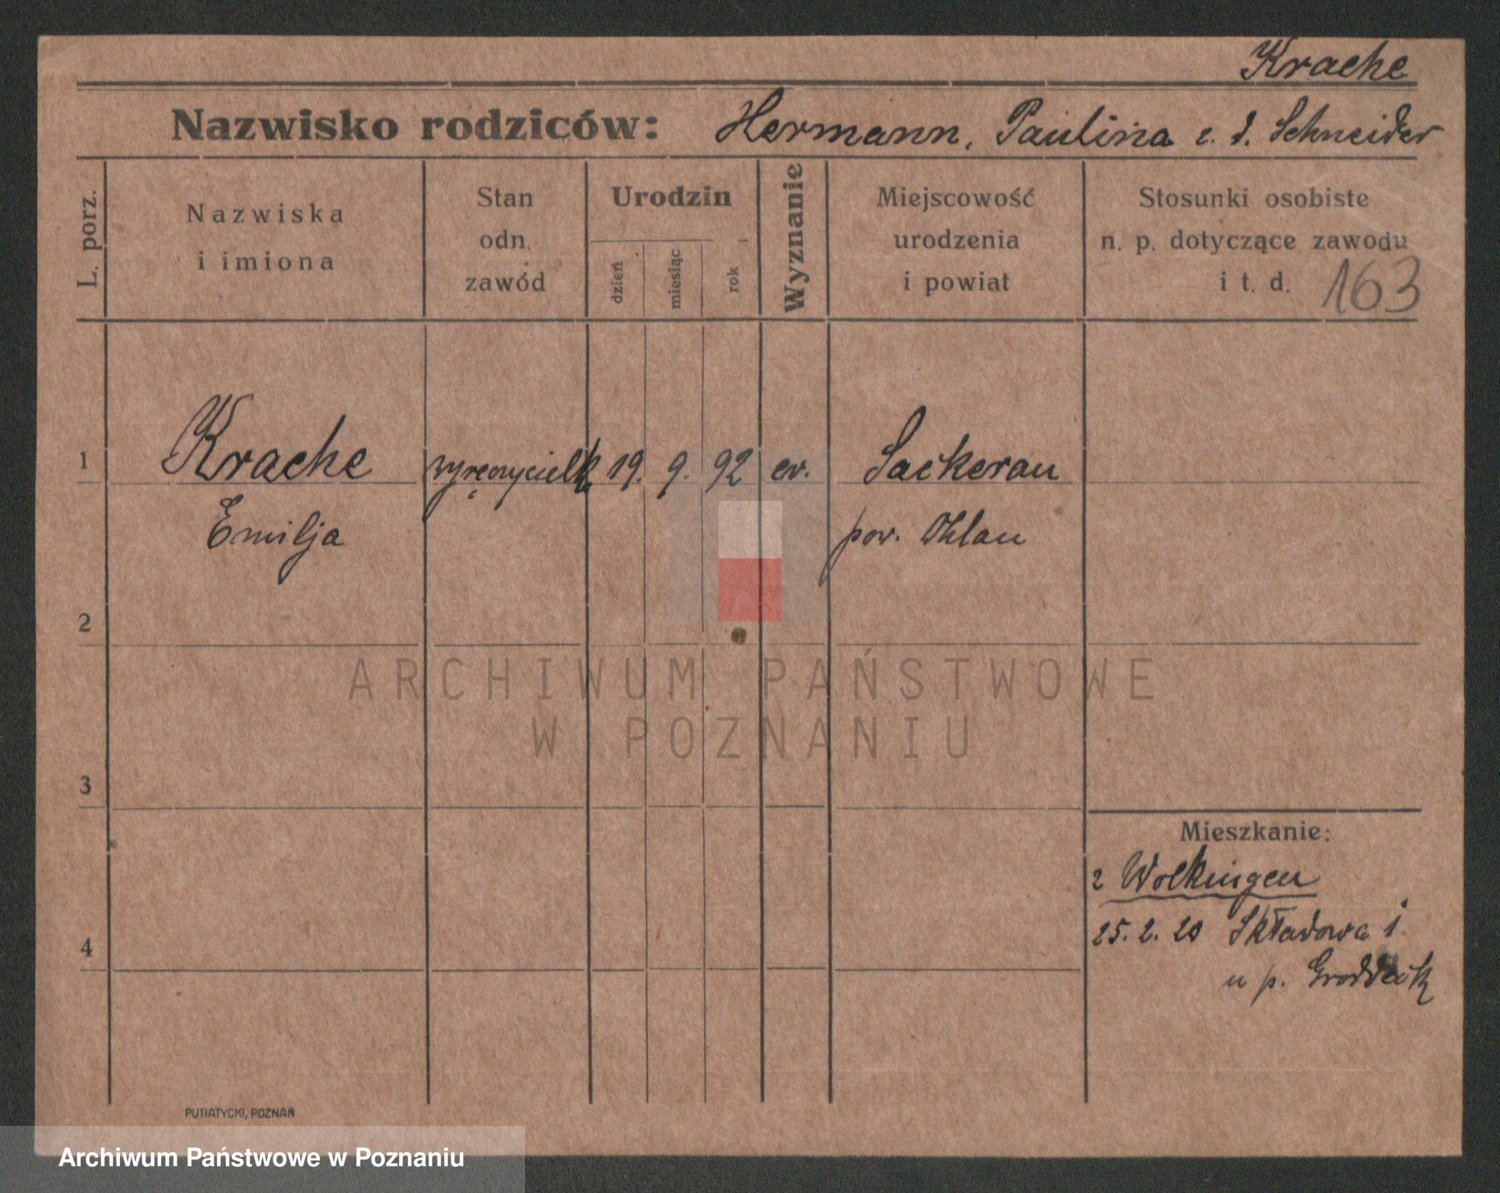 Krache
Nazwisko rodziców: Hermann, Paulina z. d. Schneider
L. porz.
Nazwiska
i imiona
Stan
odn.
zawód
Urodzin
dzień
miesiąc
rok
Wyznanie
Miejscowość
urodzenia
i powiat
Stosunki osobiste
n. p. dotyczące zawodu
i t. d.
163
1 Krache wyręczycielk 19. 9. 92 ev. Sackerau
Emilja pow. Ohlau
2
ARCHIWUM PAŃSTWOWE
W POZNANIU
3
Mieszkanie:
z Wolkingen
4 25. 2. 20 Składowa 1
u p. Groddeck
PUTIATYCKI, POZNAŃ
Archiwum Państwowe w Poznaniu